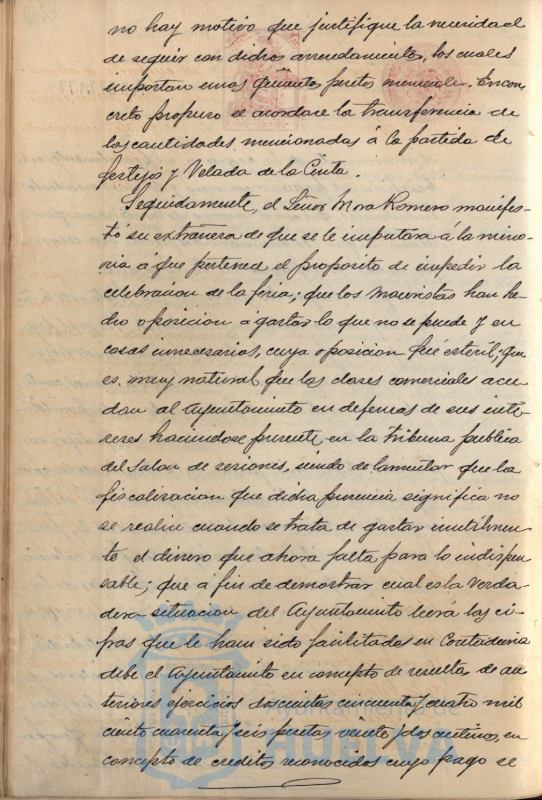 no hay motivo que justifique la necesidad
de seguir con dichos arrendamientos, los cuales
importan unas quinientas pesetas mensuales. En con-
creto propuso se acordase la transferencia de
las cantidades mencionadas á la partida de
festejos y Velada de la Cinta.
Seguidamente, el Señor Mora Romero manifes-
tó su extrañeza de que se le imputara á la mino-
ria á que pertenece el proposito de impedir la
celebracion de la feria; que los mauristas han he-
cho oposicion á gastar lo que no se puede y en
cosas innecesarias, cuya oposicion fué esteril; que
es muy natural que las clases comerciales acu-
dan al Ayuntamiento en defensas de sus inte-
reses haciendose presente en la tribuna publica
del Salon de sesiones, siendo de lamentar que la
fiscalizacion que dicha presencia significa no
se realice cuando se trata de gastar inutilmen-
te el dinero que ahora falta para lo indispen-
sable; que á fin de demostrar cual es la verda-
dera situacion del Ayuntamiento leerá las ci-
fras que le han sido facilitadas en Contaduria
debe el Ayuntamiento en concepto de resultas de an-
teriores ejercicios doscientas cincuenta y cuatro mil
ciento cuarenta y seis pesetas veinte y dos centimos, en
concepto de creditos reconocidos cuyo pago se
HUELVA